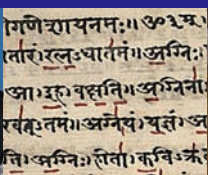 गणेशायनमः॥ॐ३म्
तारं।रत्नऽधातमं॥अग्निः
आ।इह।वक्षति॥अग्निना
वत्ऽतमं॥अग्नेयं।यज्ञं।अ
ति॥अग्निः।होता।कविऽक्र